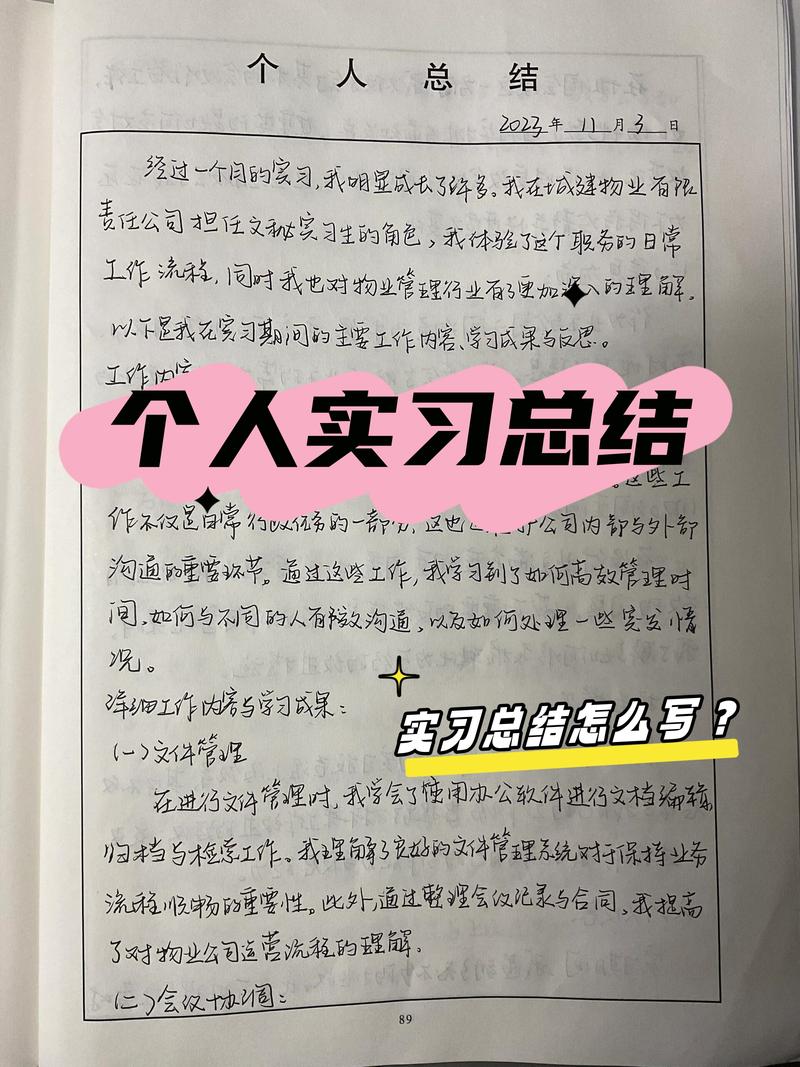 个人总结
2023年11月3日
经过一个月的实习,我明显成长了许多。我在城建物业有限
责任公司担任文秘实习生的角色,我体验了这个职务的日常
工作流程,同时我也对物业管理行业有了更加深入的理解。
以下是我在实习期间的主要工作内容、学习成果与反思。
工作内容
个人实习总结
。这些工
作不仅是日常行政任务的一部分,这也是 公司内部与外部
沟通的重要环节。通过这些工作,我学习到了如何高效管理时
间,如何与不同的人有效沟通,以及如何处理一些突发情
况。
详细工作内容与学习成果:
实习总结怎么写?
(一)文件管理
在进行文件管理时,我学会了使用办公软件进行文档编辑、
归档与检索工作。我理解了良好的文件管理系统对于保持业务
流程顺畅的重要性。此外,通过整理会议记录与合同,我提高
了对物业公司运营流程的理解。
(二)会议协调:
89